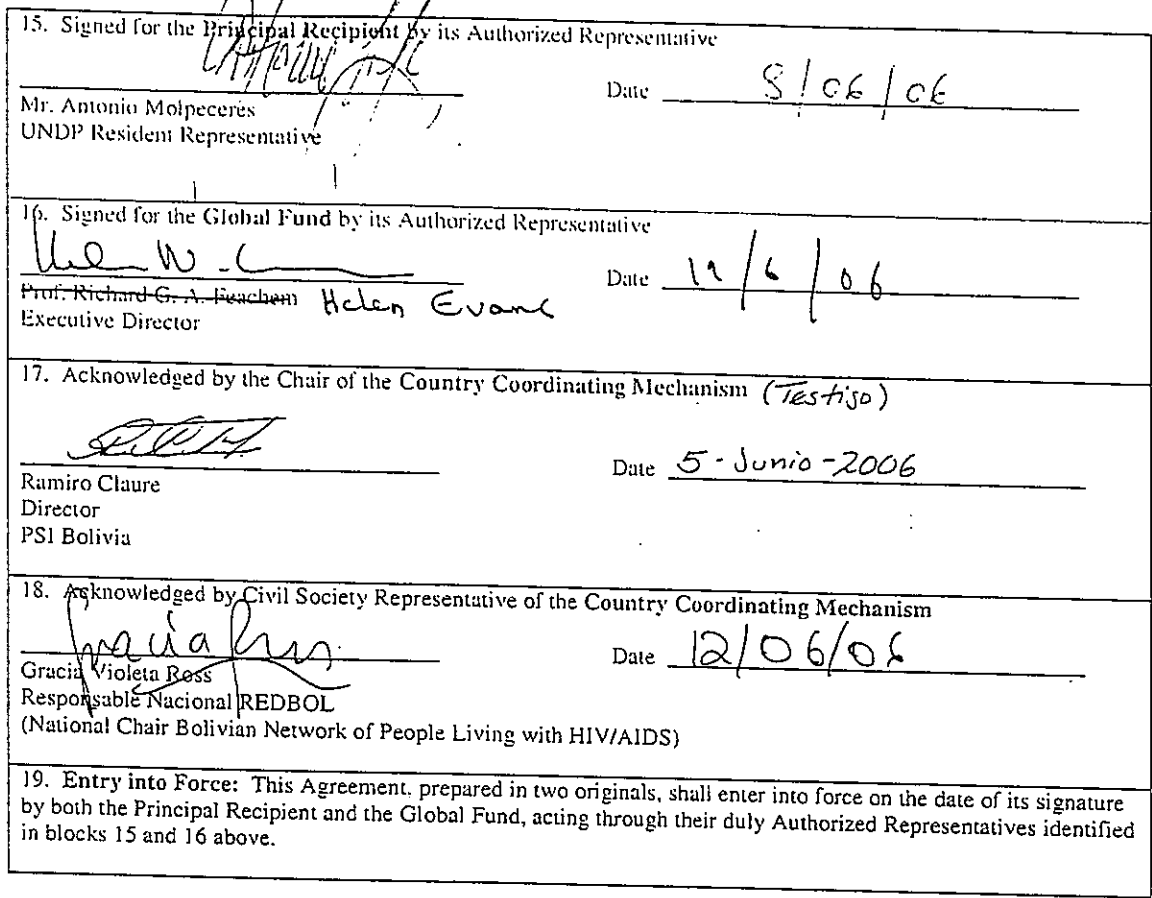 15. Signed for the Principal Recipient by its Authorized Representative
Date 8/06/06
Mr. Antonio Molpeceres
UNDP Resident Representative
16. Signed for the Global Fund by its Authorized Representative
Date 19/6/06
Prof. Richard G. A. Feachem Helen Evans
Executive Director
17. Acknowledged by the Chair of the Country Coordinating Mechanism (Testigo)
Date 5-Junio-2006
Ramiro Claure
Director
PSI Bolivia
18. Acknowledged by Civil Society Representative of the Country Coordinating Mechanism
Date 12/06/06
Gracia Violeta Ross
Responsable Nacional REDBOL
(National Chair Bolivian Network of People Living with HIV/AIDS)
19. Entry into Force: This Agreement, prepared in two originals, shall enter into force on the date of its signature
by both the Principal Recipient and the Global Fund, acting through their duly Authorized Representatives identified
in blocks 15 and 16 above.